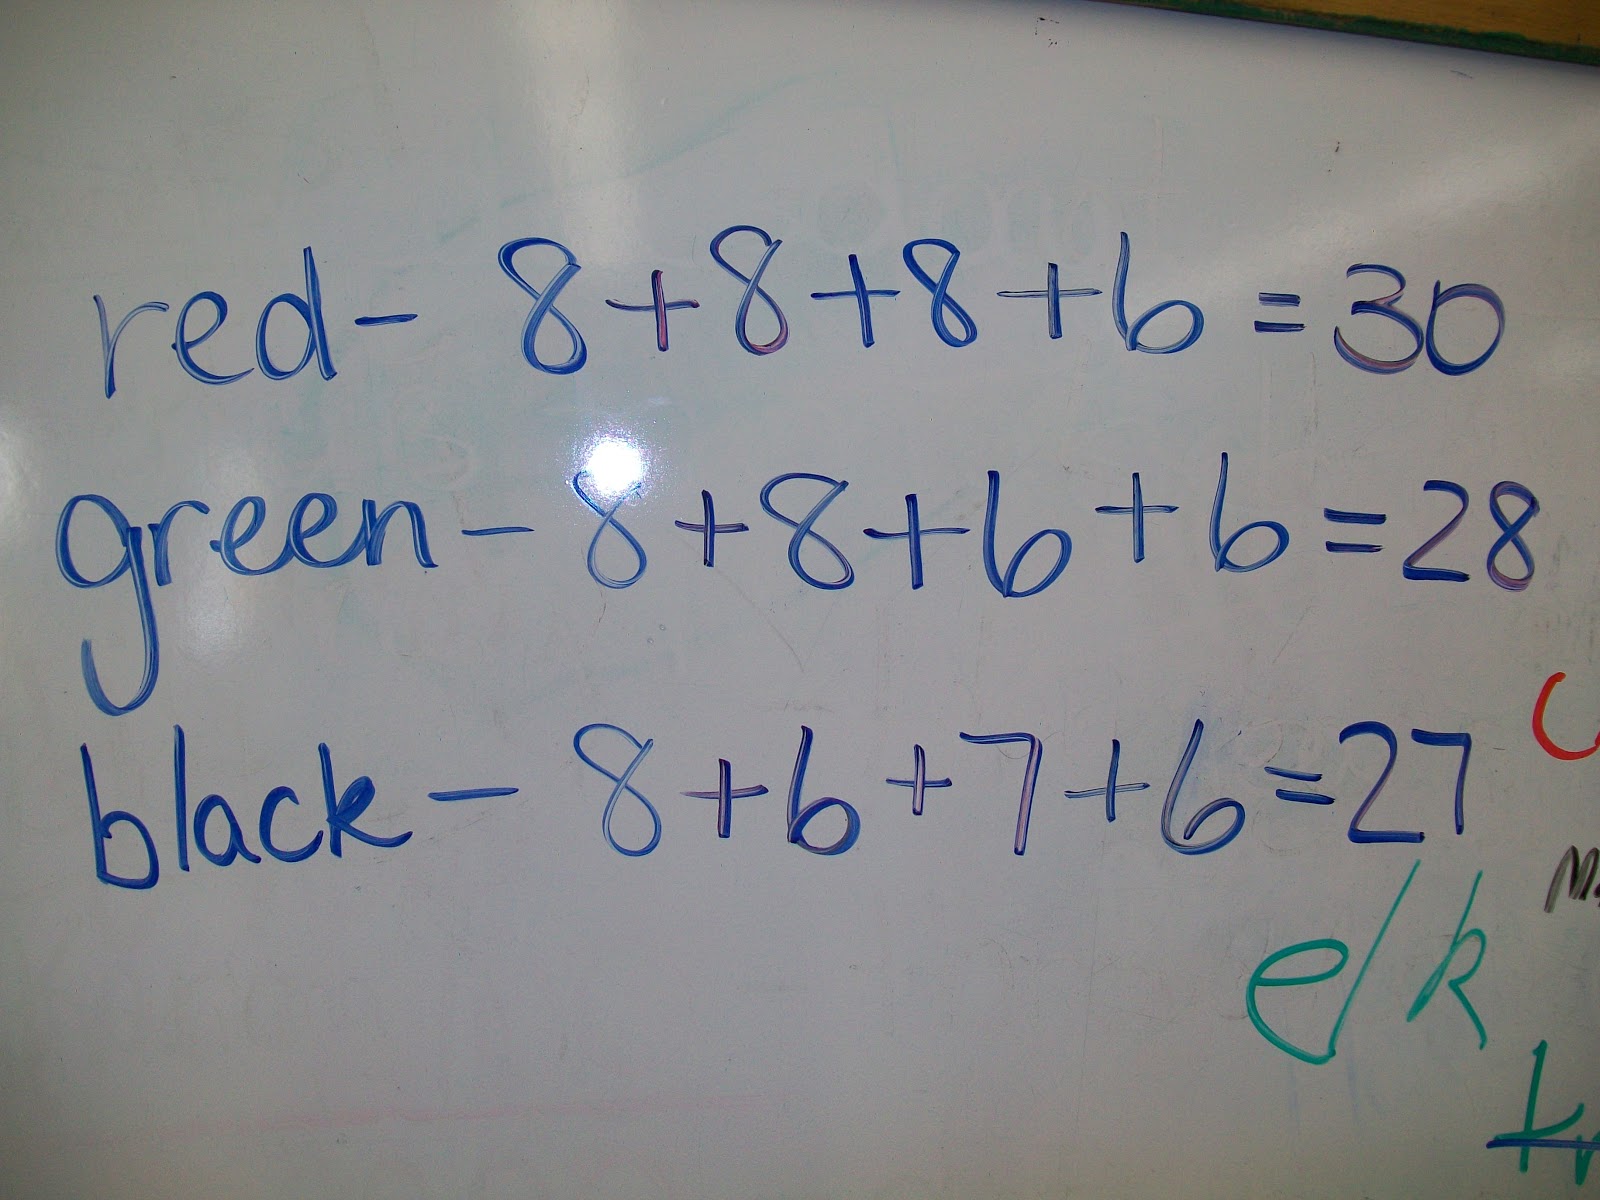 red- 8+8+8+6=30
green-8+8+6+6=28
black-8+6+7+6=27
elk